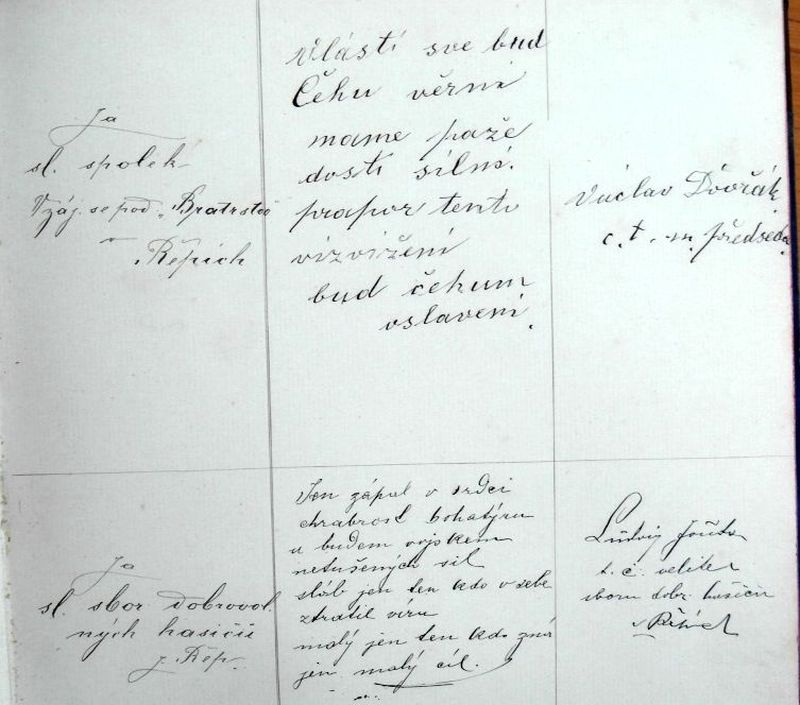 Za
sl. spolek
Vzáj. se pod. „Bratrstvo
v Řepích
Vlásti sve bud
Čěhu věrni
mame paže
dosti silni.
prapor tento
vizvižení
bud čehum
oslavení.
Václav Dvořák,
č. t. m. předseda
Za
sl. sbor dobrovol
ných hasičů
z Řep.
Jen zápal v srdci
chrabrost bohatýru
a budem vojskem
netušených sil
sláb jen ten kdo v sebe
ztratil víru
malý jen ten kdo zná
jen malý cíl.
Ludvig
t. č. velitel
sboru dobr. hasičů
v Řepích